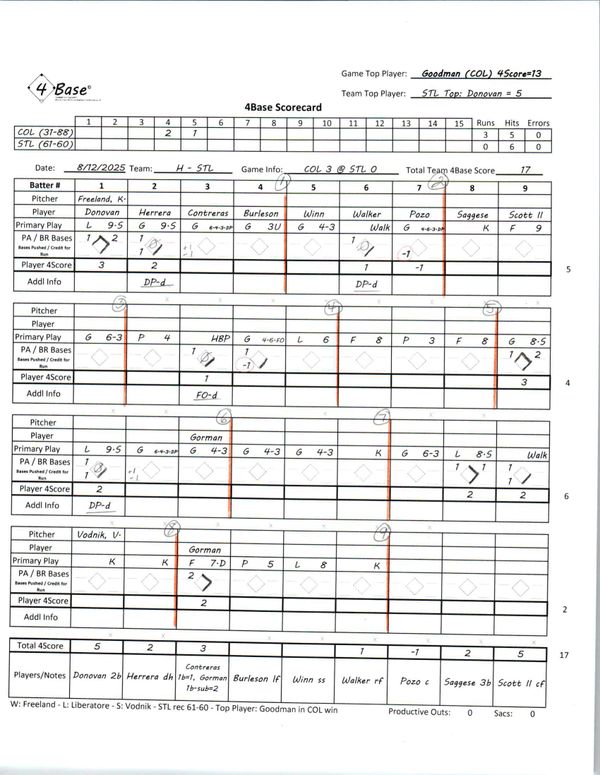 Game Top Player: Goodman (COL) 4Score=13
4 Base©
Team Top Player: STL Top: Donovan = 5
4Base Scorecard
1 2 3 4 5 6 7 8 9 10 11 12 13 14 15 Runs Hits Errors
COL (31-88) 2 1 3 5 0
STL (61-60) 0 6 0
Date: 8/12/2025 Team: H - STL Game Info: COL 3 @ STL 0 Total Team 4Base Score 17
1 2
Batter # 1 2 3 4 5 6 7 8 9
Pitcher Freeland, K-
Player Donovan Herrera Contreras Burleson Winn Walker Pozo Saggese Scott II
Primary Play L 9-5 G 9-5 G 6-4-3-DP G 3U G 4-3 Walk G 4-6-3-DP K F 9
PA / BR Bases 1 2 1 +1 1 -1
Bases Pushed / Credit for Run 1 -1
Player 4Score 3 2 1 -1 5
Addl Info DP-d DP-d
3 4 5
Pitcher
Player
Primary Play G 6-3 P 4 HBP G 4-6-FO L 6 F 8 P 3 F 8 G 8-5
PA / BR Bases 1 1 1 2
Bases Pushed / Credit for Run -1
Player 4Score 1 3 4
Addl Info FO-d
6 7
Pitcher
Player Gorman
Primary Play L 9-5 G 6-4-3-DP G 4-3 G 4-3 G 4-3 K G 6-3 L 8-5 Walk
PA / BR Bases 1 +1 1 1 1
Bases Pushed / Credit for Run 1 -1 1
Player 4Score 2 2 2 6
Addl Info DP-d
8 9
Pitcher Vodnik, V-
Player Gorman
Primary Play K K F 7-D P 5 L 8 K
PA / BR Bases 2
Bases Pushed / Credit for Run
Player 4Score 2 2
Addl Info
Total 4Score 5 2 3 1 -1 2 5 17
Players/Notes Donovan 2b Herrera dh Contreras 1b=1, Gorman 1b-sub=2 Burleson lf Winn ss Walker rf Pozo c Saggese 3b Scott II cf
W: Freeland - L: Liberatore - S: Vodnik - STL rec 61-60 - Top Player: Goodman in COL win Productive Outs: 0 Sacs: 0